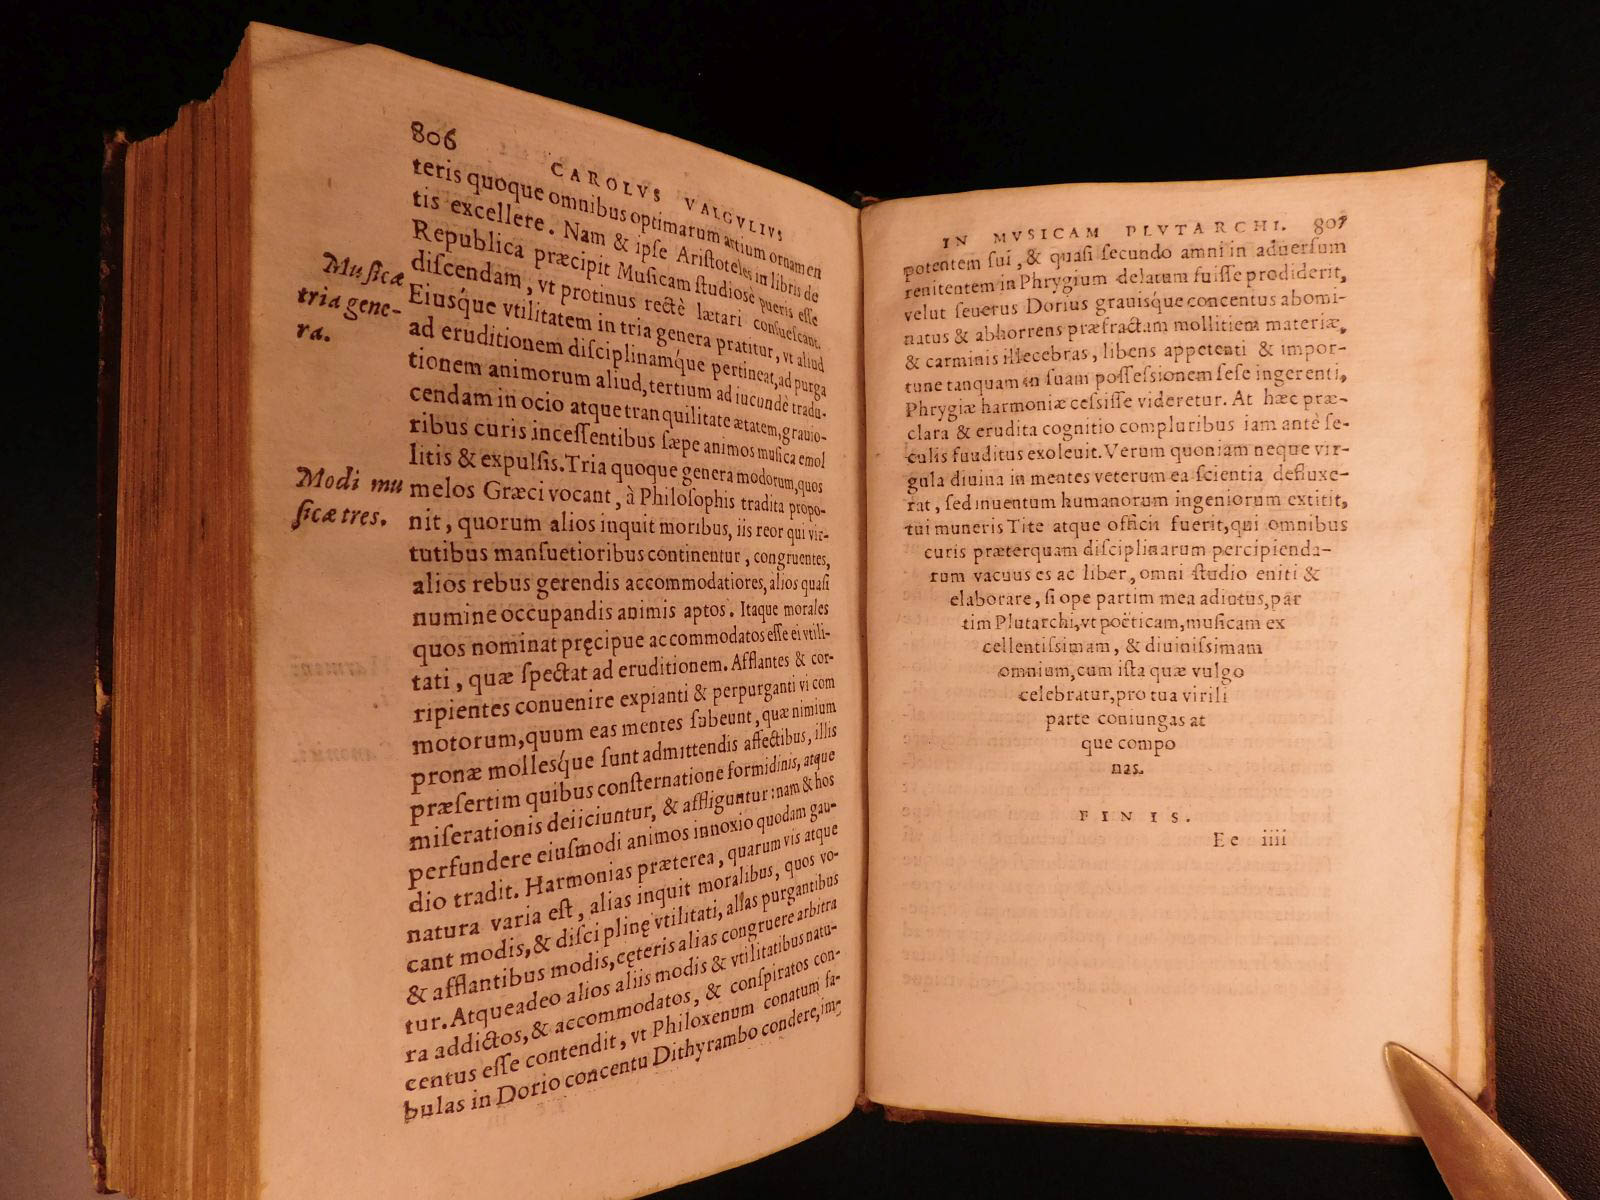 806
CAROLVS VALGVLIVS
teris quoque omnibus optimarum artium ornamen
tis excellere. Nam & ipſe Ariſtoteles in libris de
Republica præcipit Muſicam ſtudioſè pueris eſſe
diſcendam, vt protinus rectè lætari conſueſcant.
Muſicæ
tria gene-
ra.
Eiuſque vtilitatem in tria genera pratitur, vt aliud
ad eruditionem diſciplinamque pertineat, ad purga
tionem animorum aliud, tertium ad iucundè tradu-
cendam in ocio atque tranquilitate ætatem, grauio-
ribus curis inceſſentibus ſæpe animos muſica emol
litis & expulſis. Tria quoque genera modorum, quos
Modi mu
ſicæ tres.
melos Græci vocant, à Philoſophis tradita propo-
nit, quorum alios inquit moribus, iis reor qui vir-
tutibus manſuetioribus continentur, congruentes,
alios rebus gerendis accommodatiores, alios quaſi
numine occupandis animis aptos. Itaque morales
quos nominat pręcipue accommodatos eſſe ei vtili-
tati, quæ ſpectat ad eruditionem. Afflantes & cor-
ripientes conuenire expianti & perpurganti vi com
motorum, quum eas mentes ſubeunt, quæ nimium
pronæ molleſque ſunt admittendis affectibus, illis
præſertim quibus conſternatione formidinis, atque
miſerationis deiiciuntur, & affliguntur: nam & hos
perfundere eiuſmodi animos innoxio quodam gau-
dio tradit. Harmonias præterea, quarum vis atque
natura varia eſt, alias inquit moralibus, quos vo-
cant modis, & diſciplinę vtilitati, alias purgantibus
& afflantibus modis, cęteris alias congruere arbitra
tur. Atqueadeo alios aliis modis & vtilitatibus natu-
ra addictos, & accommodatos, & conſpiratos con-
centus eſſe contendit, vt Philoxenum conatum fa-
bulas in Dorio concentu Dithyrambo condere, im
IN MVSICAM PLVTARCHI. 807
potentem ſui, & quaſi ſecundo amni in aduerſum
renitentem in Phrygium delatum fuiſſe prodiderit,
velut ſeuerus Dorius grauiſque concentus abomi-
natus & abhorrens præfractam mollitiem materiæ,
& carminis illecebras, libens appetenti & impor-
tune tanquam in ſuam poſſeſsionem ſeſe ingerenti,
Phrygiæ harmoniæ ceſsiſſe videretur. At hæc præ-
clara & erudita cognitio compluribus iam antè ſe-
culis funditus exoleuit. Verum quoniam neque vir-
gula diuina in mentes veterum ea ſcientia defluxe-
rat, ſed inuentum humanorum ingeniorum extitit,
tui muneris Tite atque officii fuerit, qui omnibus
curis præterquam diſciplinarum percipienda-
rum vacuus es ac liber, omni ſtudio eniti &
elaborare, ſi ope partim mea adiutus, par
tim Plutarchi, vt poëticam, muſicam ex
cellentiſsimam, & diuiniſsimam
omnium, cum iſta quæ vulgo
celebratur, pro tua virili
parte coniungas at
que compo
nas.
FINIS.
Ee iiii